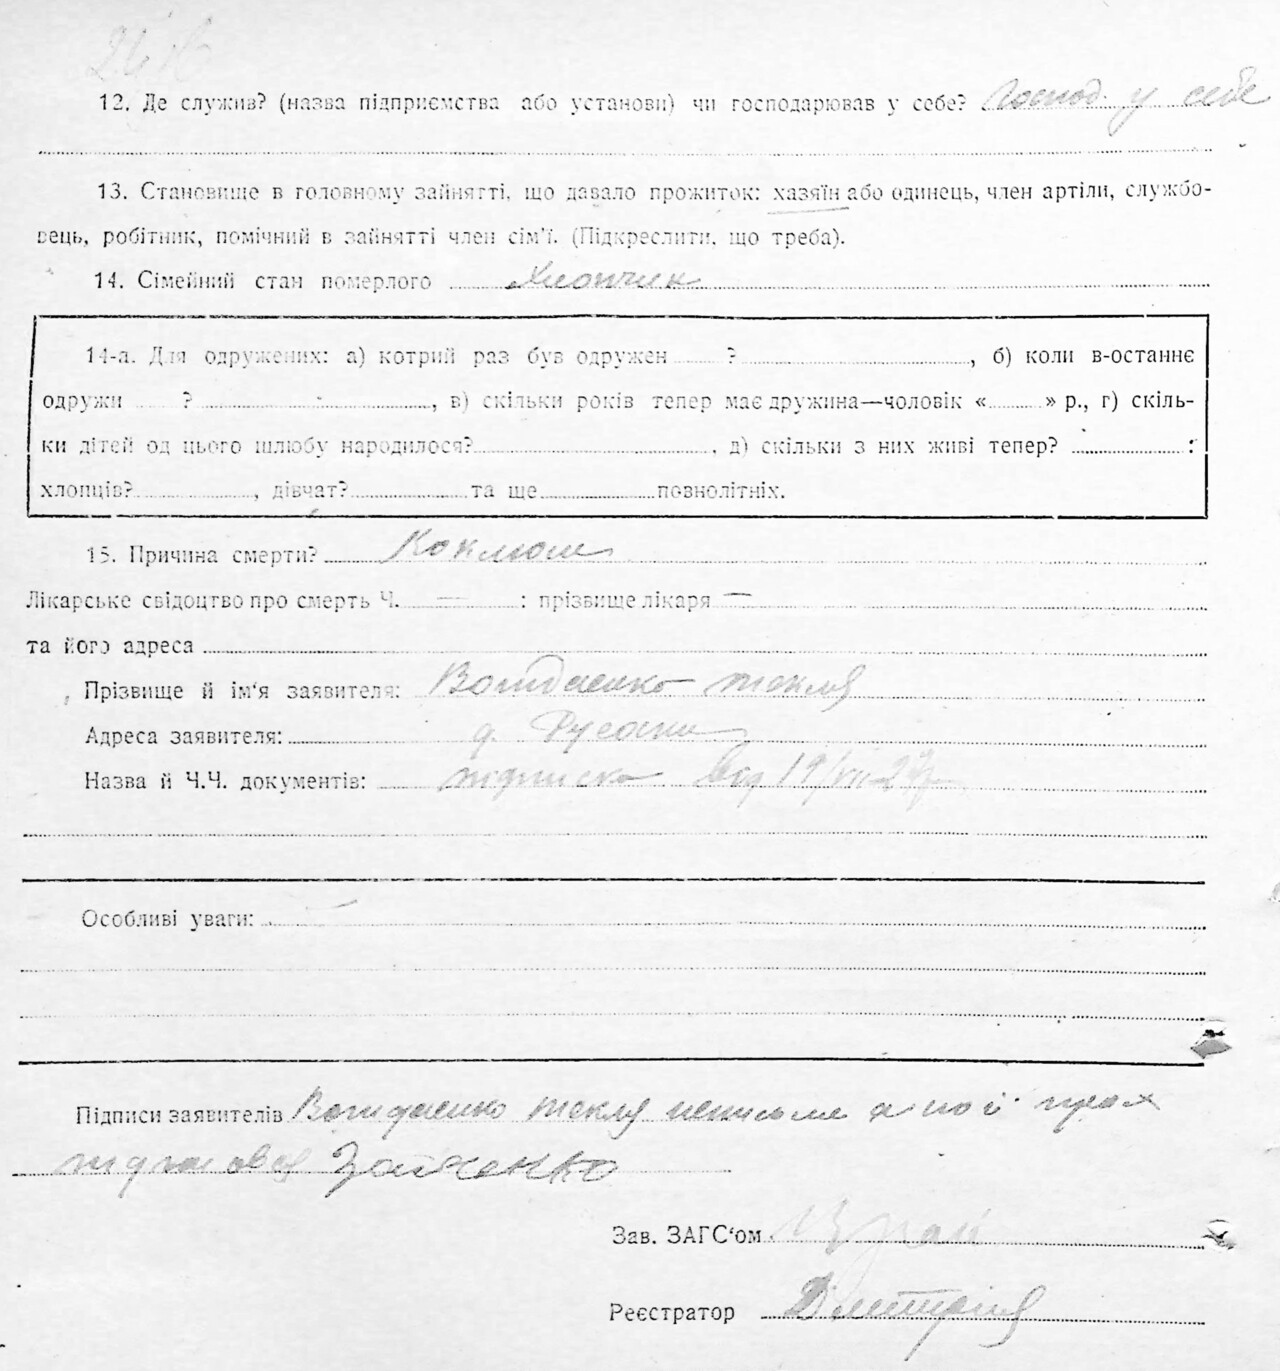 12. Де служив? (назва підприємства або установи) чи господарював у себе? Господ. у себе
13. Становище в головному зайнятті, що давало прожиток: хазяїн або одинець, член артіли, службо-
вець, робітник, помічний в зайнятті член сім'ї. (Підкреслити, що треба).
14. Сімейний стан померлого Хлопчик
14-а. Для одружених: а) котрий раз був одружен ? , б) коли в-останнє
одружи ? , в) скільки років тепер має дружина—чоловік « » р., г) скіль-
ки дітей од цього шлюбу народилося? , д) скільки з них живі тепер? :
хлопців? , дівчат? та ще повнолітніх.
15. Причина смерти? Коклюш
Лікарське свідоцтво про смерть Ч. — : прізвище лікаря —
та його адреса
Прізвище й ім'я заявителя: Текля
Адреса заявителя: д. Русани
Назва й Ч.Ч. документів: підписка від 19/VII-27р
Особливі уваги: —
Підписи заявителів Текля неписьменна
Зав. ЗАГС'ом
Реєстратор